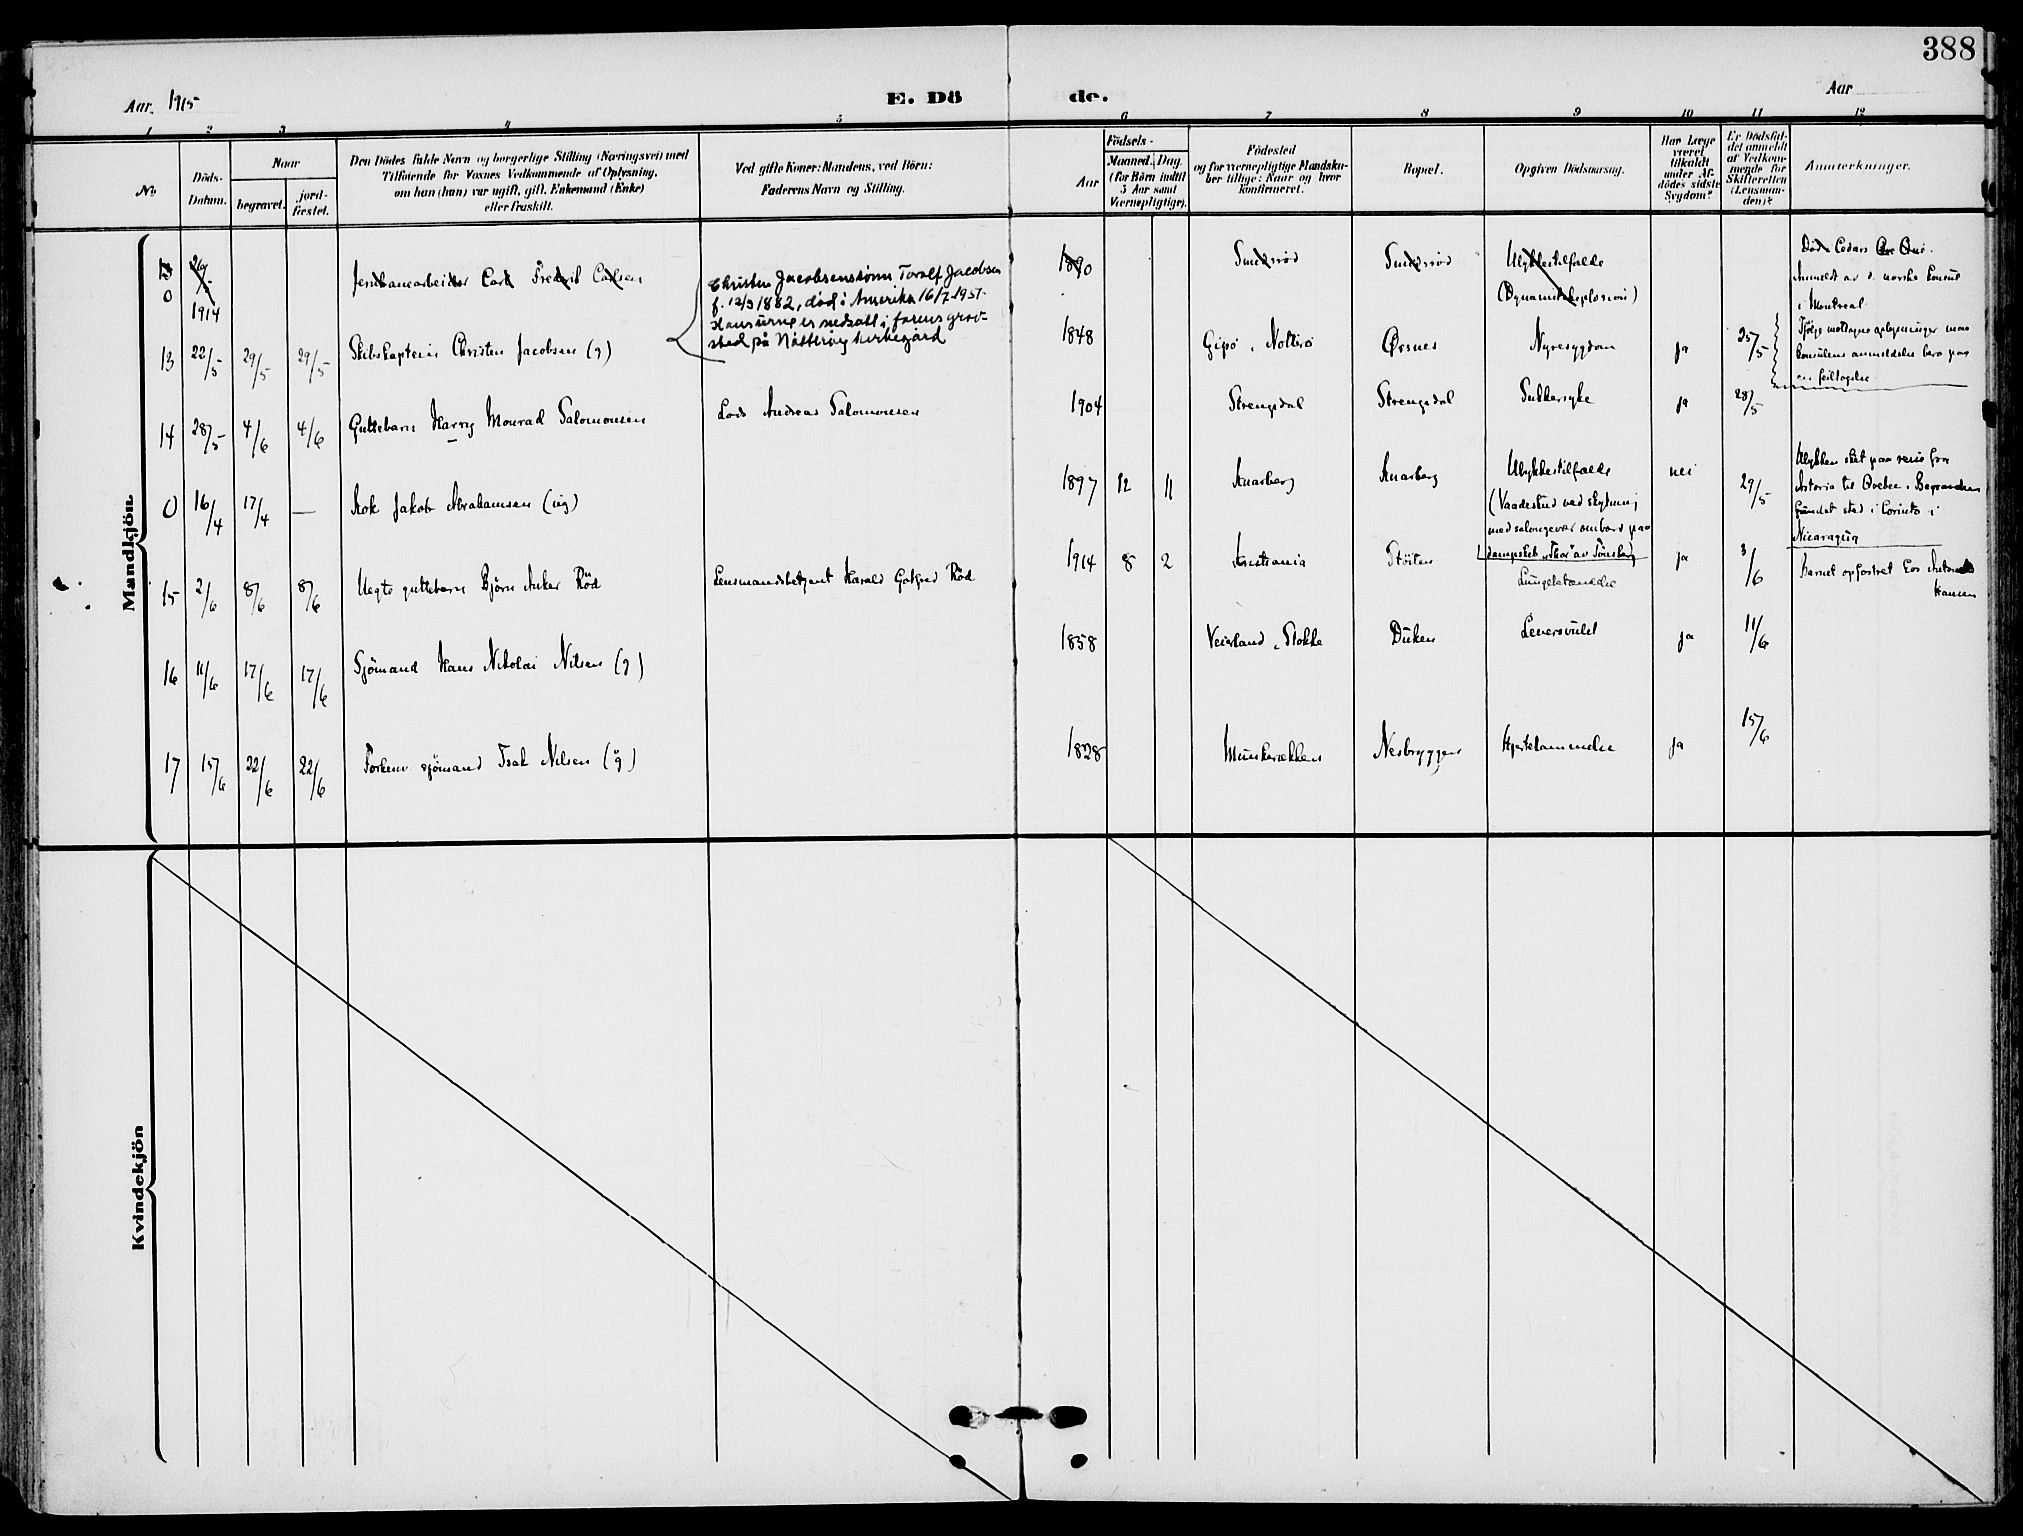 388
Aar 1915
E. Dö de.
Aar
1 2 3 4 5 6 7 8 9 10 11 12
No
Döds-
Datum.
Naar
begravet.
jord-
fæstet.
Den Dödes fulde Navn og borgerlige Stilling (Næringsvei) med
Tilföiende for Voxnes Vedkommende af Oplysning,
om han (hun) var ugift, gift, Enkemand (Enke)
eller fraskilt.
Ved gifte Koner: Mandens, ved Börn:
Faderens Navn og Stilling.
Födsels-
Aar
Maaned. Dag.
(for Börn indtil
5 Aar samt
Værnepligtige).
Födested
og for vernepligtige Mandska-
ber tillige: Naar og hvor
konfirmeret.
Bopæl.
Opgiven Dödsaarsag.
Har Læge
været
tilkaldt
under Af-
dödes sidste
Sygdom?
Er Dödsfal-
det anmeldt
af Vedkom-
mende for
Skifteretten
(Lensman-
den)?
Anmærkninger.
Mandkjön
0 26/ 1914 Jernbanearbeider Carl Fredrik Carlsen 1890 Sundrød Sundrød Ulykkestilfælde
(Dynamiteksplosion)
Død i Cedars
Anmeldt av d. norske konsul
i Montreal
Ifølge mottagne oplysninger maa
konsulens anmeldelse bero paa
en feiltagelse
Christen Jacobsens sønn Toralf Jacobsen
f. 12/3 1882, død i Amerika 16/7-1951.
Hans urne er nedsatt i farens grav-
sted på Nøtterøy kirkegård
13 22/5 29/5 29/5 Skibskaptein Christen Jacobsen (g) 1848 Gipø, Nøtterø Ørsnes Nyresygdom ja 25/5
14 28/5 4/6 4/6 Guttebarn Harry Monrad Salomonsen Lods Andreas Salomonsen 1904 Strengsdal Strengsdal Sukkersyke ja 28/5
0 16/4 17/4 — Kok Jakob Abrahamsen (ug) 1897 12 11 Knarberg Knarberg Ulykkestilfælde
(Vaadeskud ved skytning
med salongevær ombord paa
dampskib "Thor" av Tønsberg
nei 29/5
Ulykken sket paa reise fra
Astoria til Quebec. Begravelsen
fundet sted i Corinto i
Nicaragua
15 2/6 8/6 8/6 Uegte guttebarn Björn Anker Röd Lensmandsbetjent Harald Gotfred Röd 1914 8 2 Kristiania Stöiten Lungebetændelse ja 3/6 Barnet opfostret hos
Hansen
16 11/6 17/6 17/6 Sjömand Hans Nikolai Nilsen (g) 1858 Veierland, Stokke Duken Leversvulst ja 11/6
17 15/6 22/6 22/6 Forhenv. sjömand Isak Nilsen (g) 1828 Munkerekken Nesbryggen Hjertelammelse ja 15/6
Kvindekjön